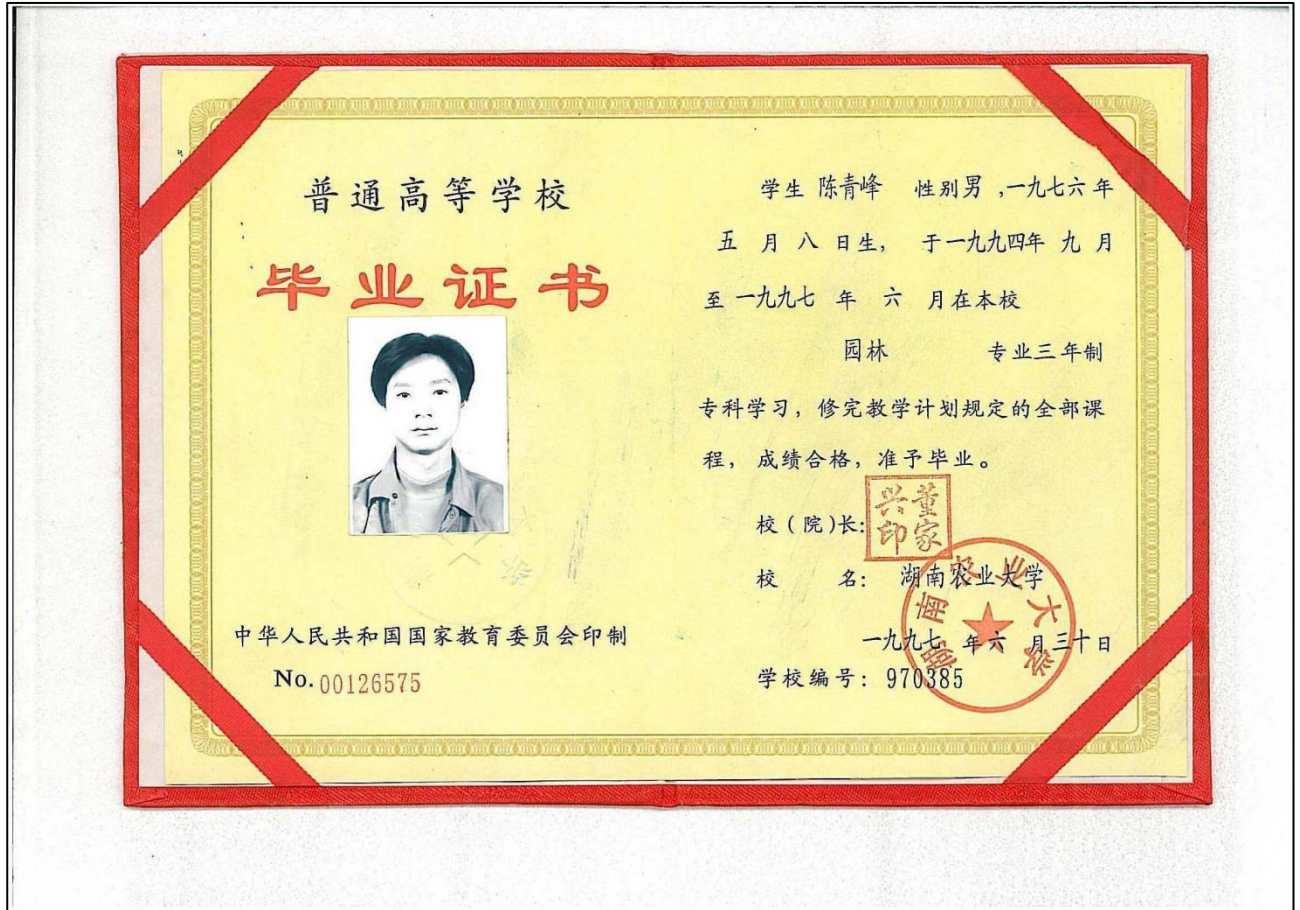 普通高等学校
毕业证书
中华人民共和国国家教育委员会印制
No.00126575
学生 陈青峰 性别男 ,一九七六年
五 月 八 日生, 于一九九四年 九 月
至 一九九七 年 六 月在本校
园林 专业三年制
专科学习, 修完教学计划规定的全部课
程, 成绩合格, 准予毕业。
校(院)长:
董家兴印
校 名: 湖南农业大学
湖南农业大学
一九九七 年六 月三十日
学校编号: 970385